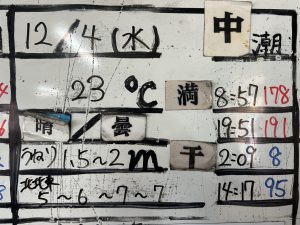 12/4(水) 中潮
23℃ 満 8:57 178
晴/曇 19:51 191
うねり 1.5~2m 干 2:09 8
北北東 5~6~7~7 14:17 95